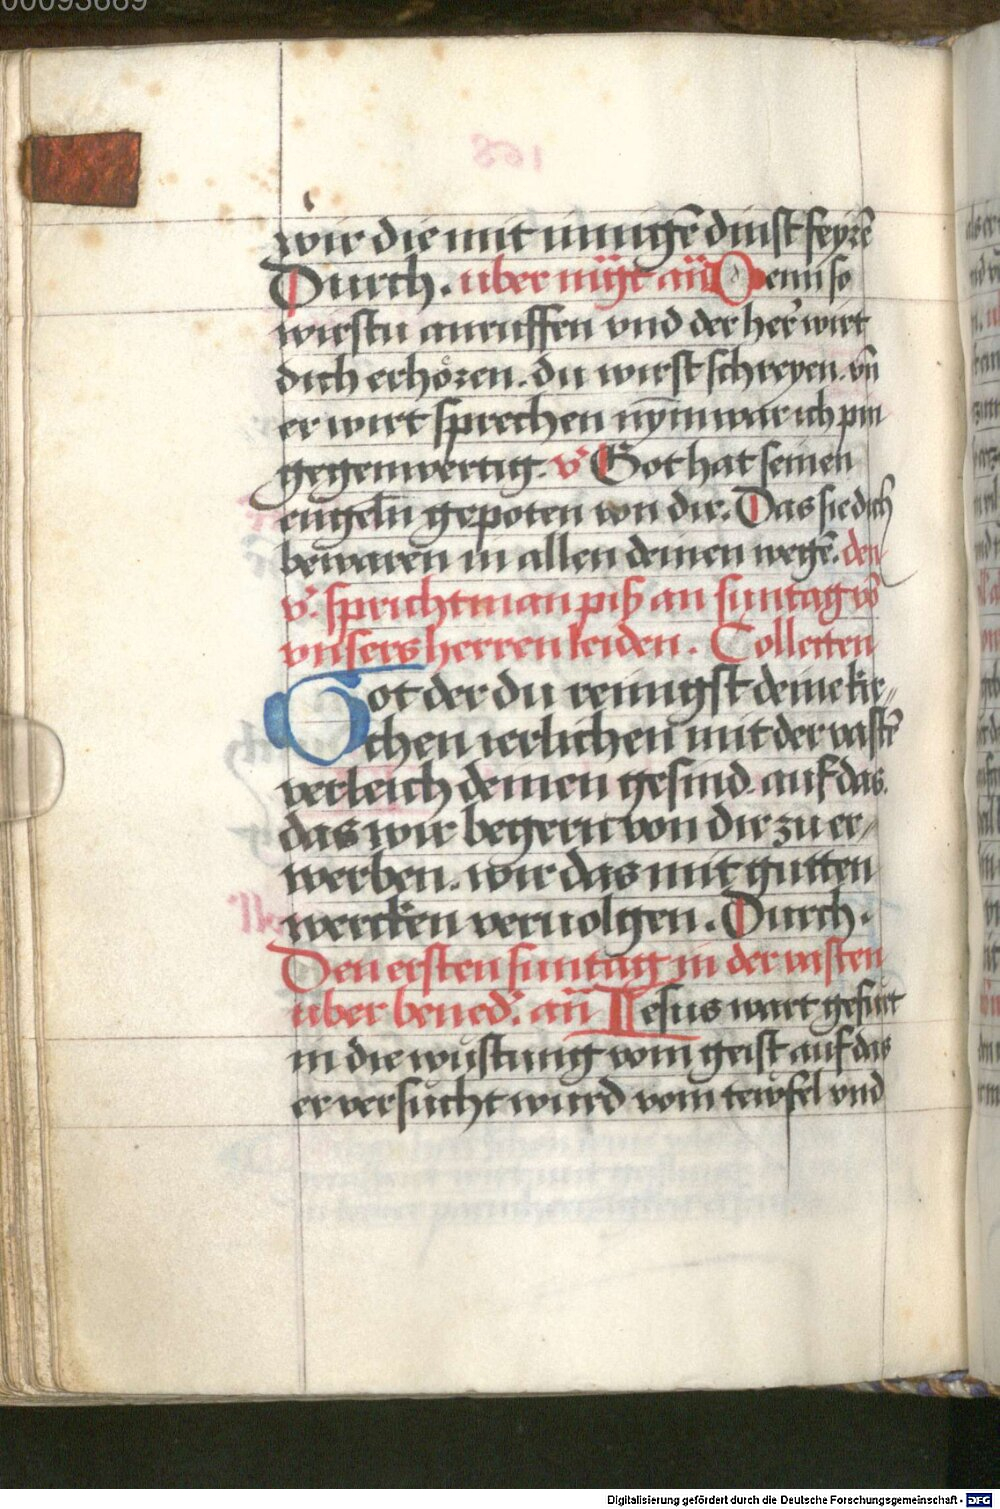 00093669
wir die mit innigē dinst feyrē
Durch. uber mgt añ Denn so
wirstu anruffen vnd der her wirt
dich erhören. du wirst schreyen. vñ
er wirt sprechen nym war ich pin
gegenwertig. v̓ Got hat seinen
engeln gepoten von dir. Das sie dich
bewaren in allen deinen wegē. den
v̓. spricht man piß an suntag vō
vnsers herren leiden. Collecten
Got der du reinigst deine kir„
chen ierlichen mit der vastē
verleich deinen gesind. auf das.
das wir begern von dir zu er„
werben. wir das mit gutten
wercken veruolgen. Durch.
Den ersten suntag in der vasten
uber bened̓. añ Iesus wart gefurt
in die wüstung vom geist auf das
er versucht wurd vom tewfel vnd
Digitalisierung gefördert durch die Deutsche Forschungsgemeinschaft - DFG